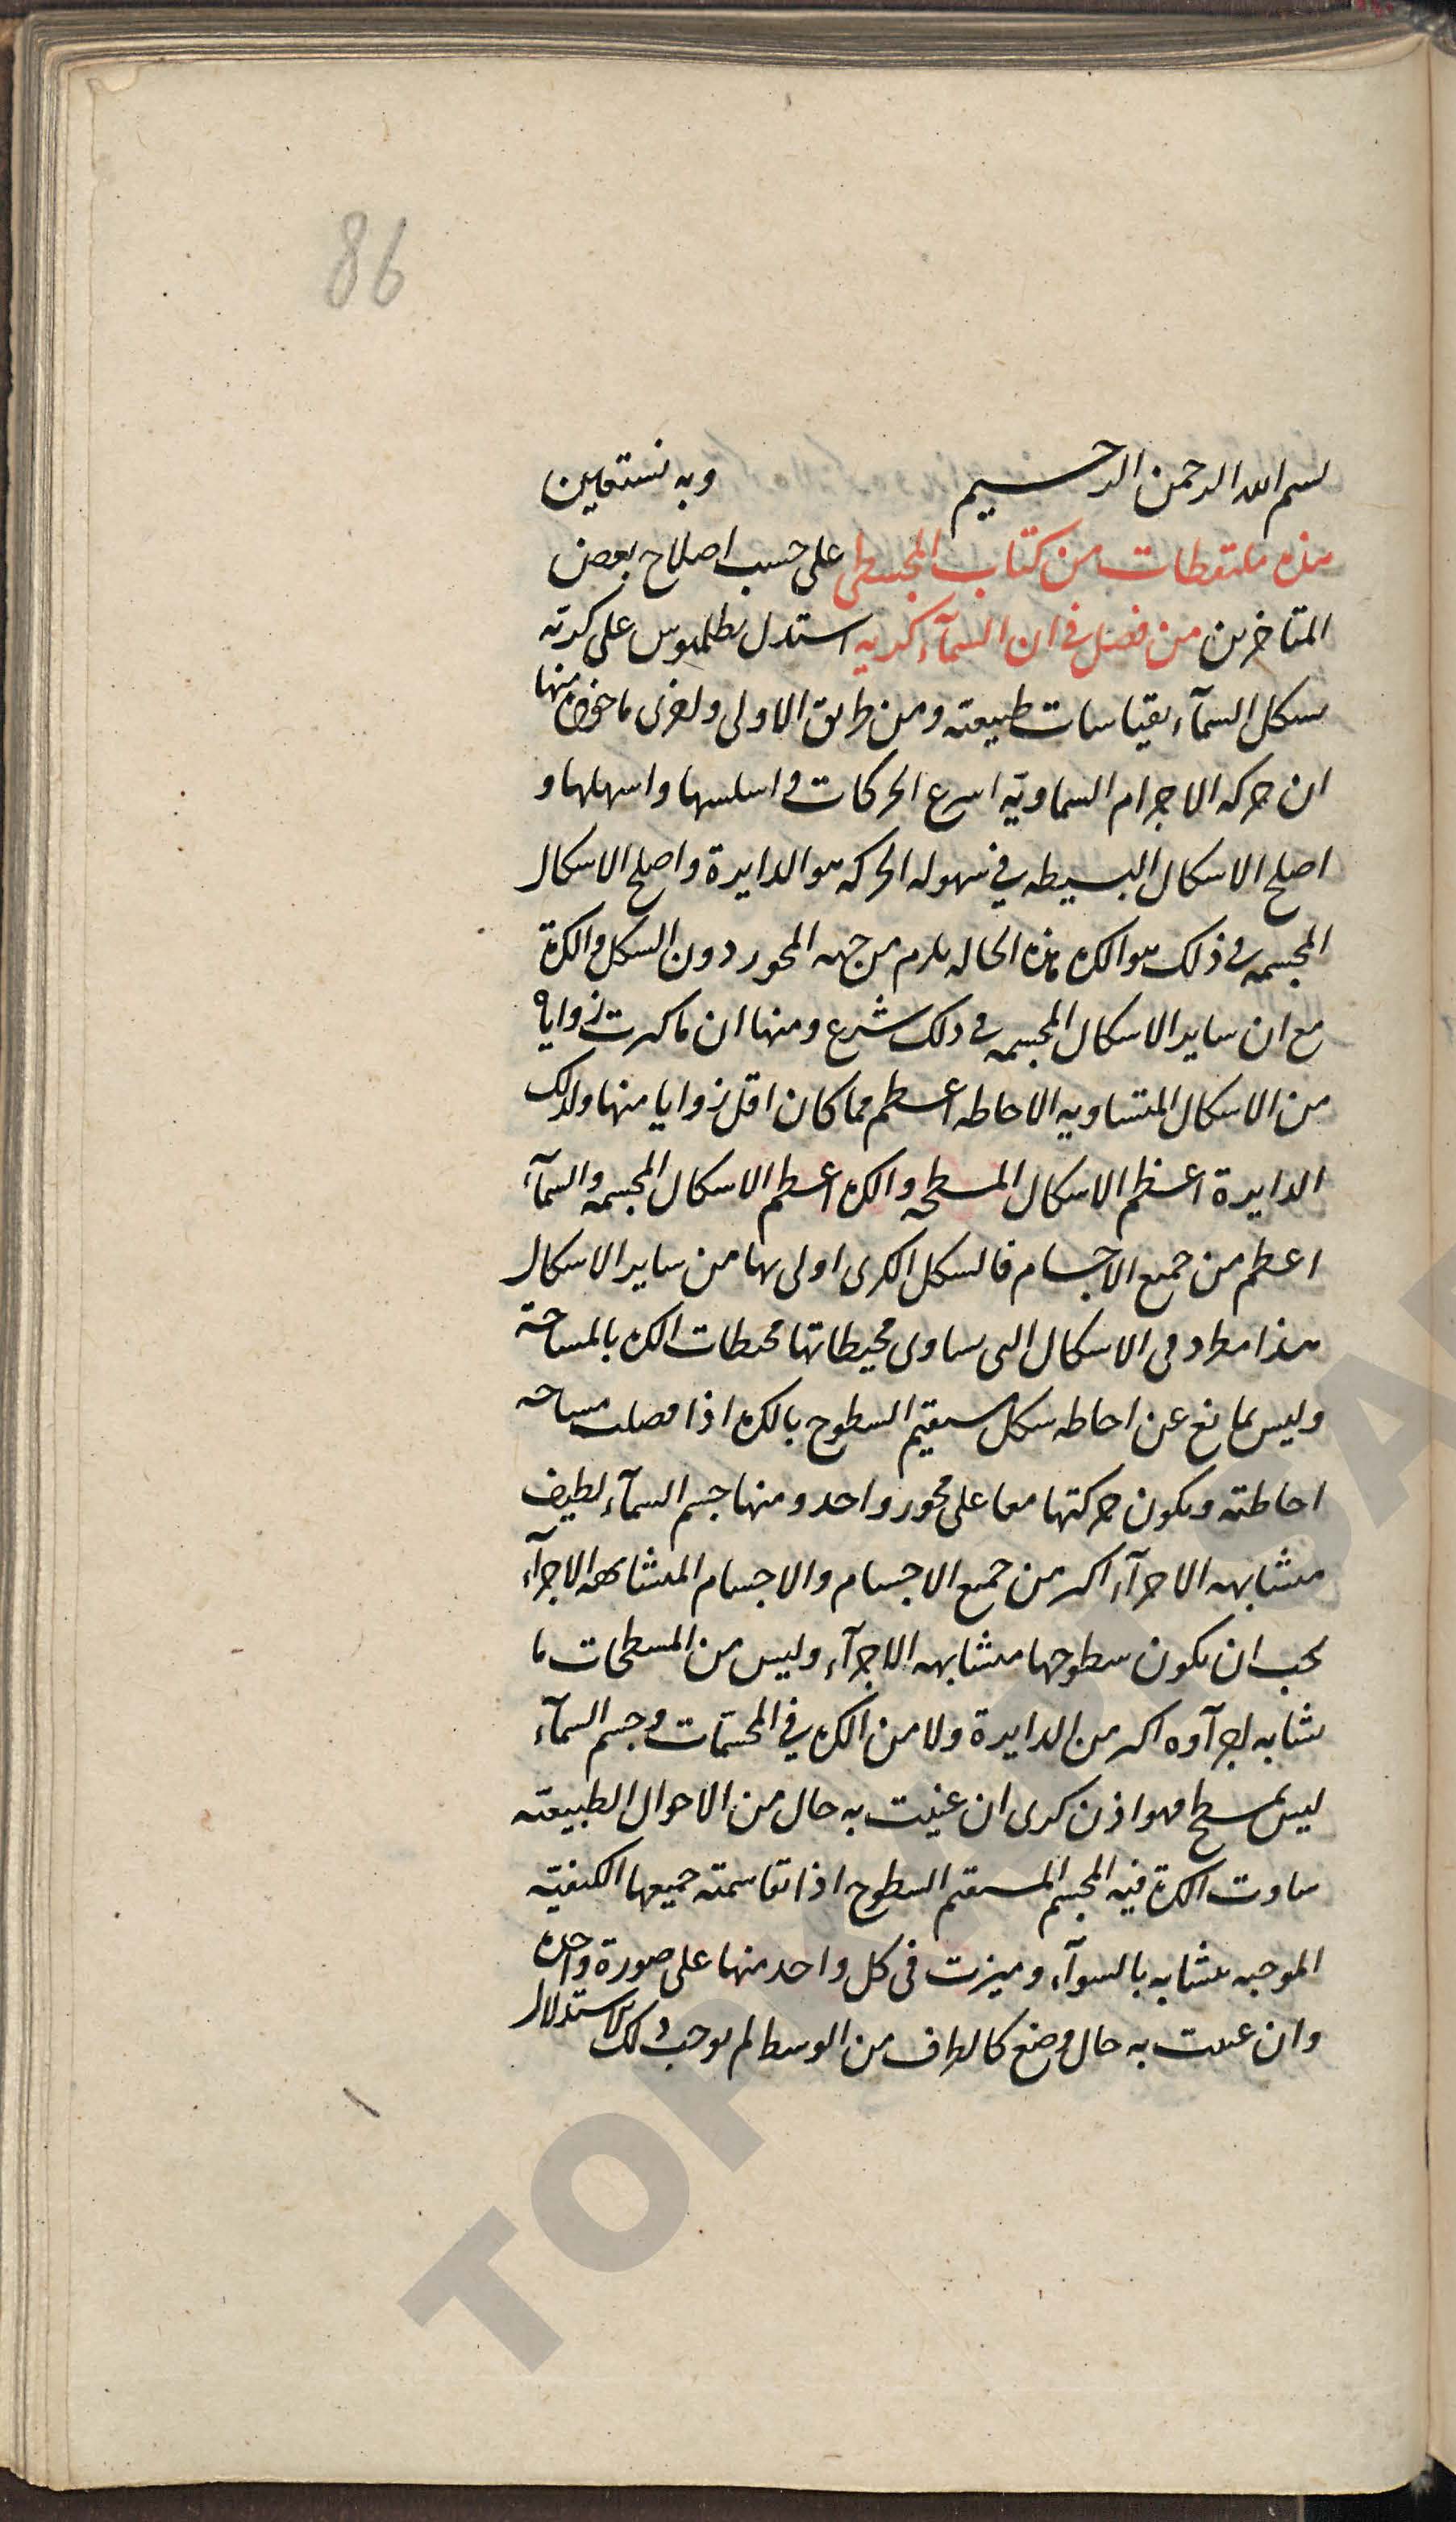 86
بسم الله الرحمن الرحيم وبه نستعين
هذه ملتقطات من كتاب المجسطى على حسب اصلاح بعض
المتاخرين من فصل فى ان السمآء كريه استدل بطلميوس على كريه
شكل السمآء بقياسات طبيعيه ومن طريق الاولى والاحرى منها
ان حركه الاجرام السماويّه اسرع الحركات واسلسها واسهلها و
اصلح الاشكال البسيطه فى سهوله الحركه هو الدايرة واصلح الاشكال
المجسمه فى ذلك هو الكره هذه الحاله يلزم من جهه المحور دون الشكل والكرة
مع ان ساير الاشكال المجسمه فى ذلك شرع ومنها ان ما كثرت زواياه
من الاشكال المتساويه الاحاطه اعظم مما كان اقل زوايا منها ولذلك
الدايرة اعظم الاشكال المسطحه والكره اعظم الاشكال المجسمه والسمآء
اعظم من جميع الاجسام فالشكل الكرى اولى بها من ساير الاشكال
هذا مطرد فى الاشكال التى يساوى محيطاتها محيطات الكره بالمساحة
وليس بمانع عن احاطه شكل مستقيم السطوح بالكره اذا فضلت مساحه
احاطته ويكون حركتها معا على محور واحد ومنها جسم السمآء لطيف
متشابهه الاجزآء اكثر من جميع الاجسام والاجسام المتشابهه الاجزآء
يجب ان يكون سطوحها متشابهه الاجزآء وليس من المسطحات ما
تشابه اجزآوه اكثر من الدايرة ولا من الكره فى المجسّمات وجسم السمآء
ليس بمسطح فهو اذن كرى ان عنيت به حال من الاحوال الطبيعيه
ساوت الكرة فيه المجسم المستقيم السطوح اذا تقاسمته جميعها الكيفيّه
الموجبه تشابه بالسوآء وميزت فى كل واحد منها على صورة واحده
وان عنيت به حال وضع كالاطراف من الوسط لم يوجب ذلك الاستدلال
TOPKAPI SA